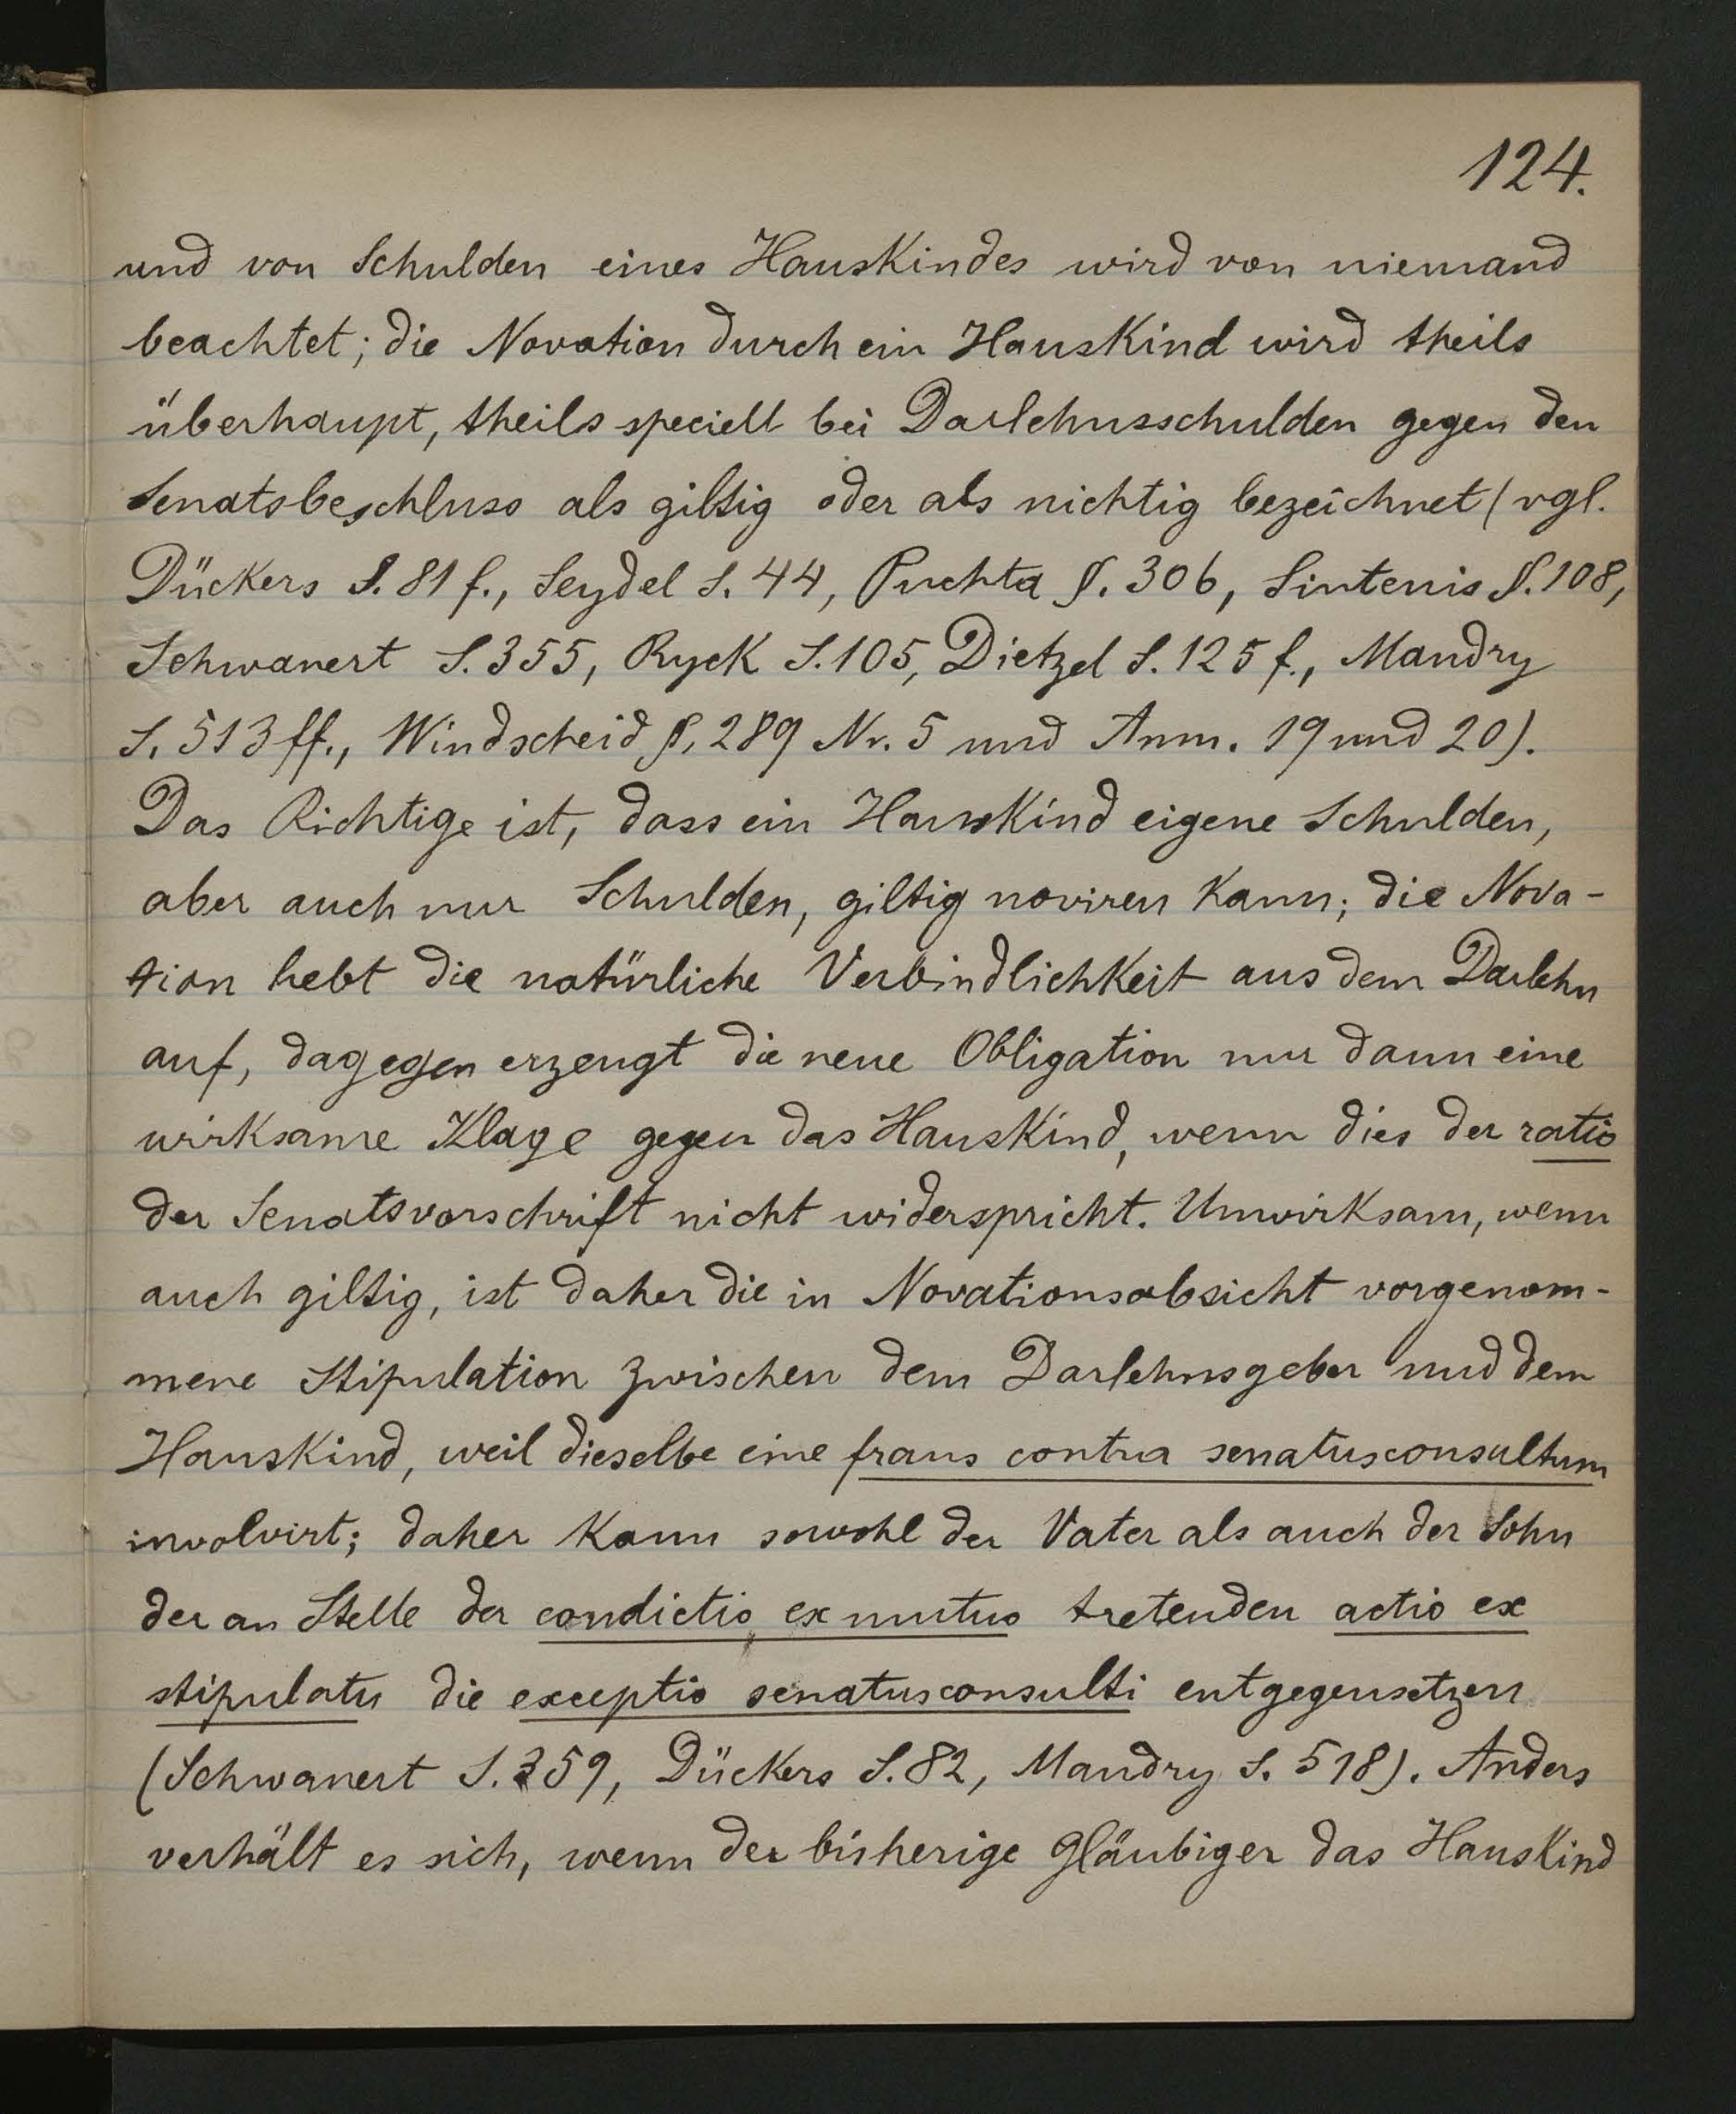 124.
und von Schulden eines Hauskindes wird von niemand
beachtet; die Novation durch ein Hauskind wird theils
überhaupt, theils speciell bei Darlehnsschulden gegen den
Senatsbeschluss als giltig oder als nichtig bezeichnet (vgl.
Dückers S. 81 f., Seydel S. 44, Puchta §. 306, Sintenis §. 108,
Schwanert S. 355, Ryck S. 105, Dietzel S. 125 f., Mandry
S. 513 ff., Windscheid §. 289 Nr. 5 und Anm. 19 und 20).
Das Richtige ist, dass ein Hauskind eigene Schulden,
aber auch nur Schulden, giltig noviren kann; die Nova-
tion hebt die natürliche Verbindlichkeit aus dem Darlehn
auf, dagegen erzeugt die neue Obligation nur dann eine
wirksame Klage gegen das Hauskind, wenn dies der ratio
der Senatsvorschrift nicht widerspricht. Unwirksam, wenn
auch giltig, ist daher die in Novationsabsicht vorgenom-
mene Stipulation zwischen dem Darlehnsgeber und dem
Hauskind, weil dieselbe eine fraus contra senatusconsultum
involvirt; daher kann sowohl der Vater als auch der Sohn
der an Stelle der condictio ex mutuo tretenden actio ex
stipulatu die exceptio senatusconsulti entgegensetzen
(Schwanert S. 359, Dückers S. 82, Mandry S. 518). Anders
verhält es sich, wenn der bisherige Gläubiger das Hauskind